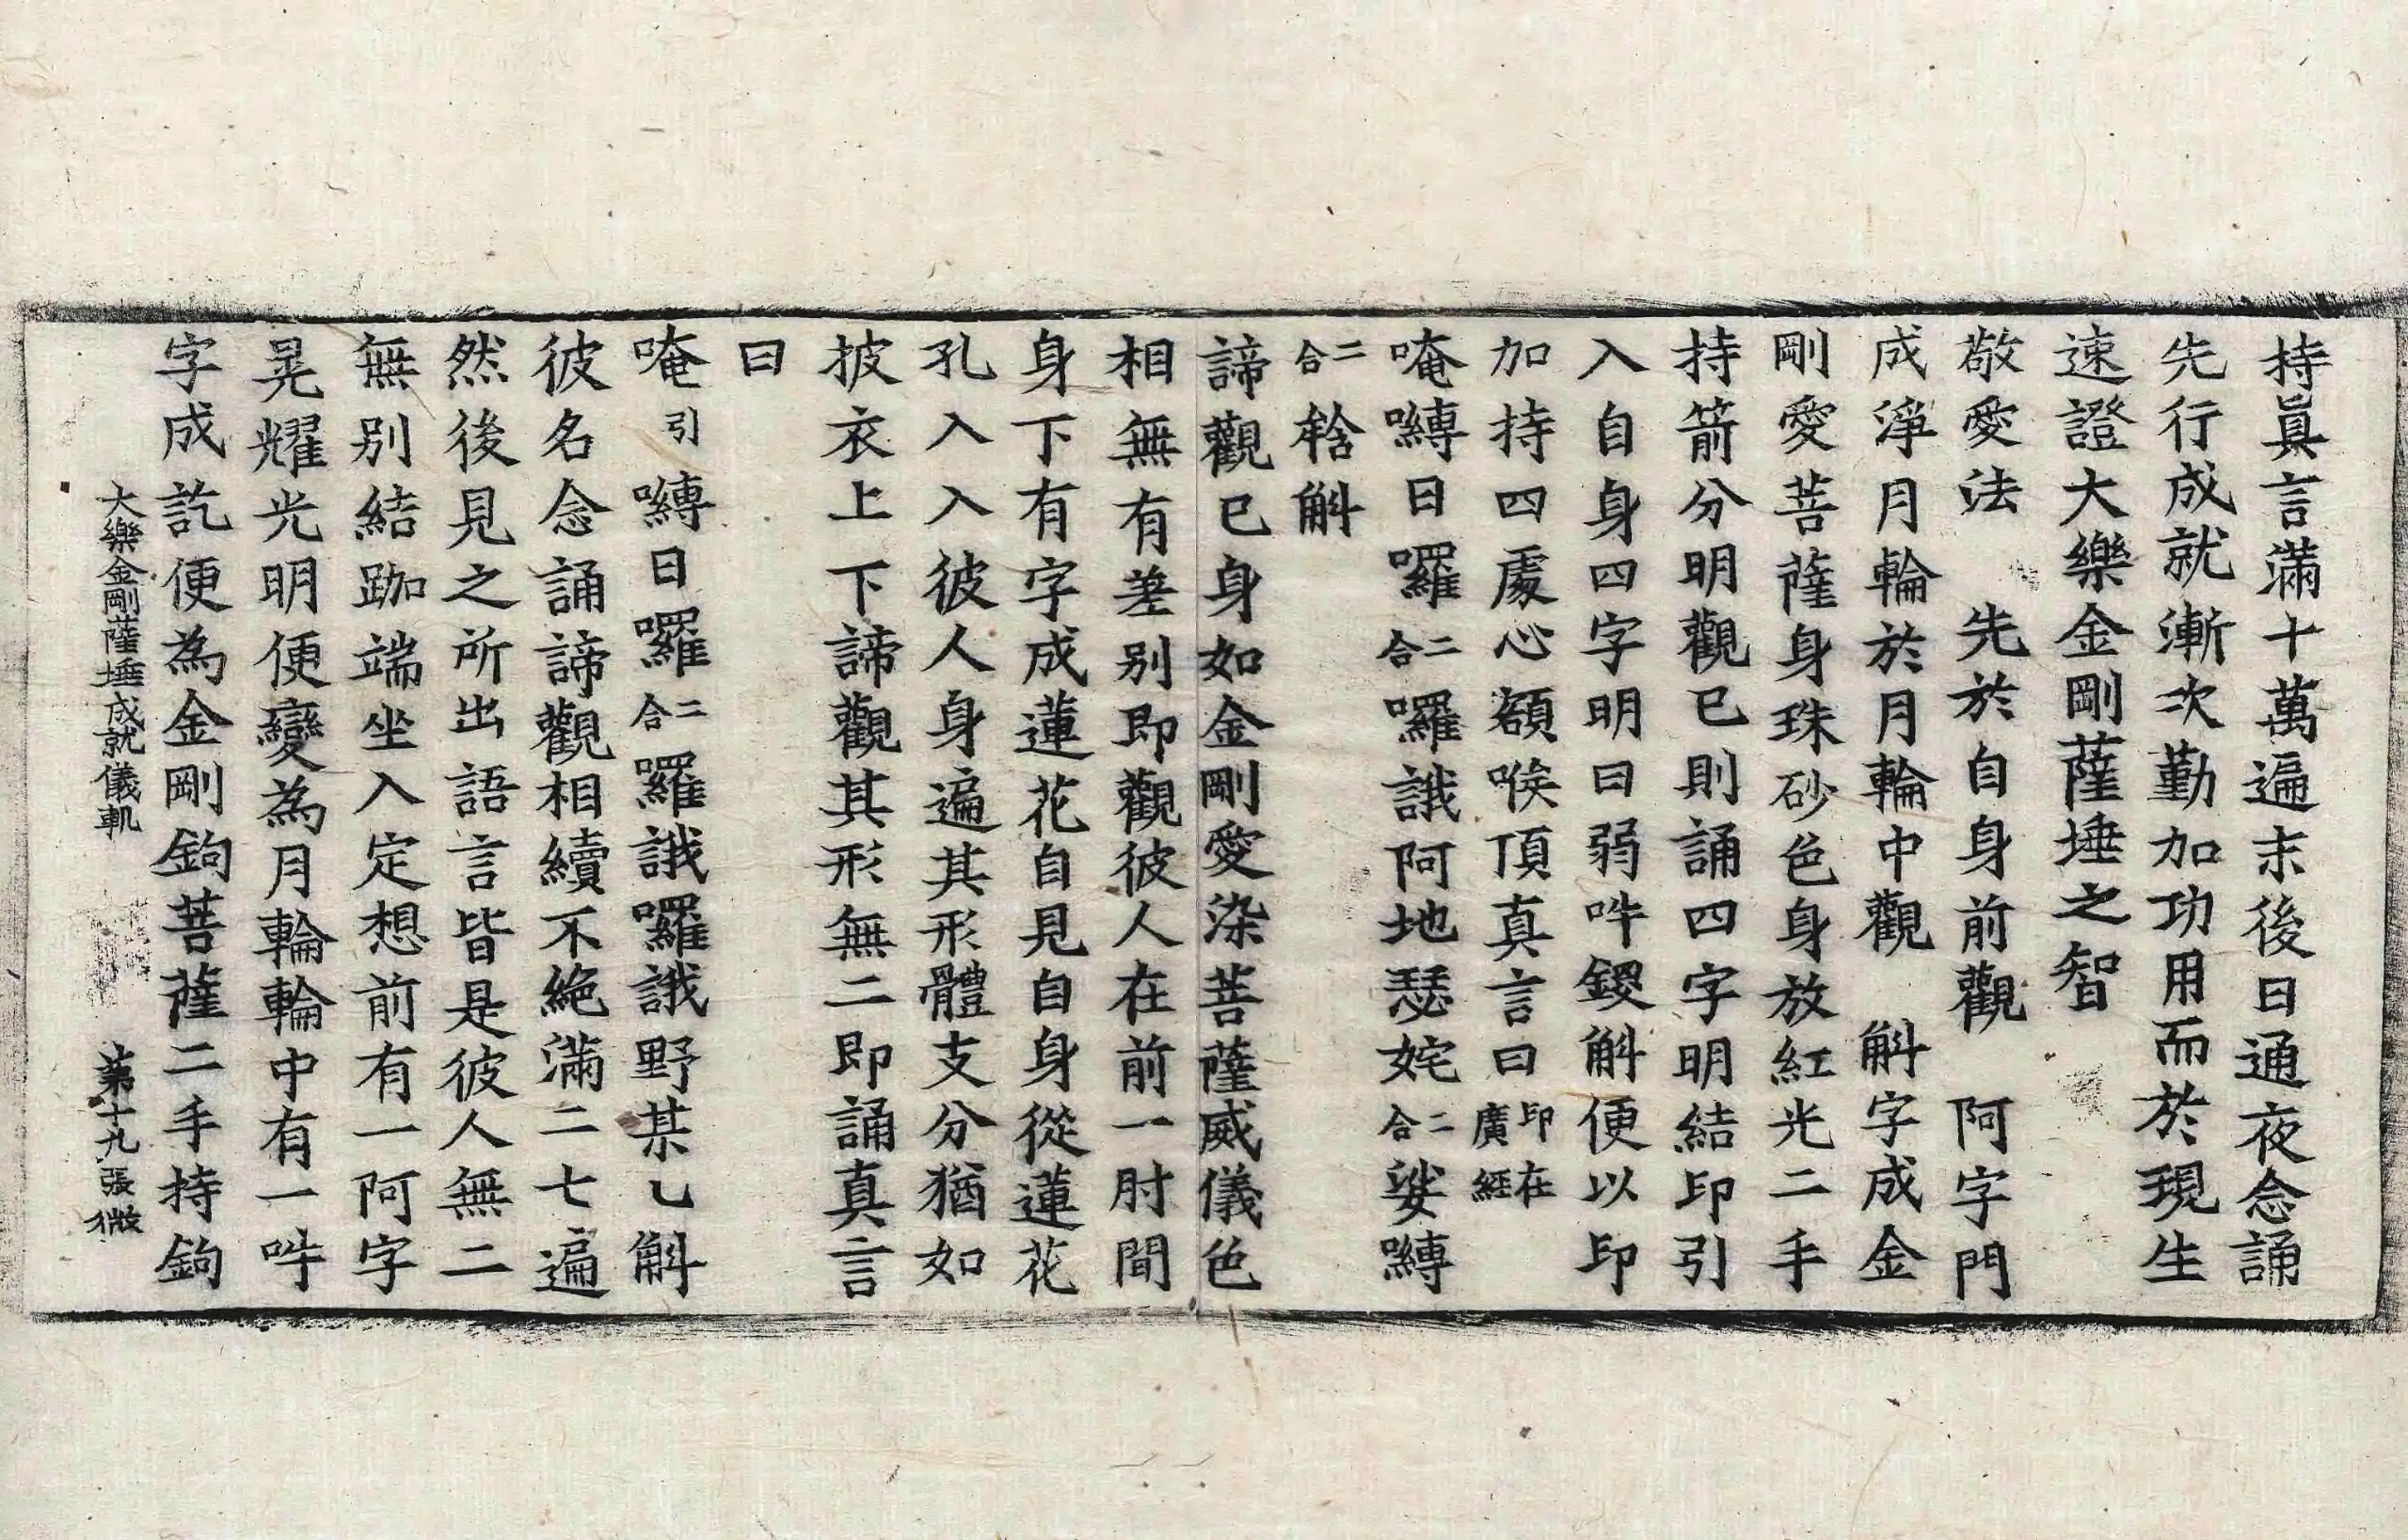 持眞言滿十萬遍末後日通夜念誦
先行成就漸次勤加功用而於現生
速證大樂金剛薩埵之智
敬愛法　先於自身前觀　阿字門
成淨月輪於月輪中觀　斛字成金
剛愛菩薩身珠砂色身放紅光二手
持箭分明觀已則誦四字明結印引
入自身四字明曰弱吽鑁斛便以印
加持四處心額喉頂真言曰印在廣經
唵嚩日囉二合囉誐阿地瑟姹二合娑嚩
二合輅斛
諦觀已身如金剛愛染菩薩威儀色
相無有差別即觀彼人在前一肘間
身下有字成蓮花自見自身從蓮花
孔入入彼人身遍其形體支分猶如
披衣上下諦觀其形無二即誦真言
曰
唵引嚩日囉二合囉誐囉誐野某乙斛
彼名念誦諦觀相續不絶滿二七遍
然後見之所出語言皆是彼人無二
無別結跏端坐入定想前有一阿字
晃耀光明便變為月輪輪中有一吽
字成訖便為金剛鉤菩薩二手持鉤
大樂金剛薩埵成就儀軌　第十九張微